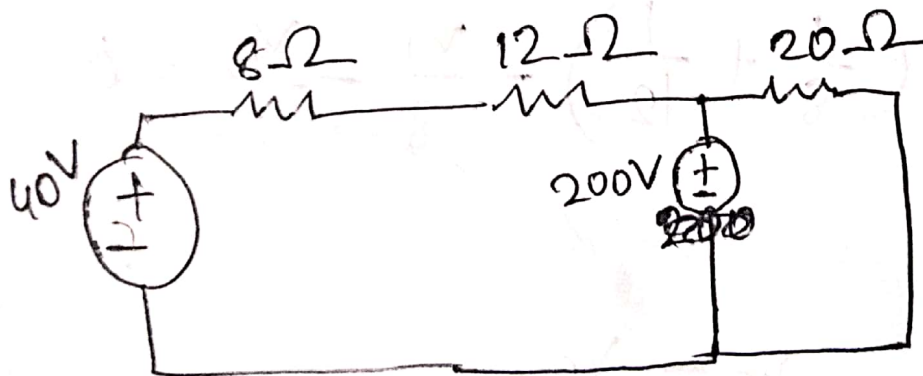 8Ω 12Ω 20Ω
40V
+
-
200V
+
-